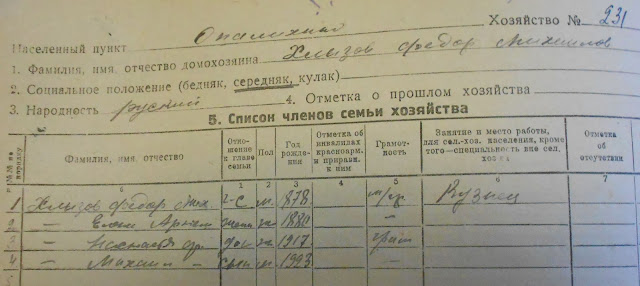 Населенный пункт Опалихино Хозяйство № 231
1. Фамилия, имя, отчество домохозяина Хлызов Федор Михайлов
2. Социальное положение (бедняк, середняк, кулак)
3. Народность русский 4. Отметка о прошлом хозяйства
5. Список членов семьи хозяйства
№№ по порядку Фамилия, имя, отчество Отношение к главе семьи Пол Год рождения Отметка об инвалидах красноарм. и приравн. к ним Грамотность Занятие и место работы, для сел.-хоз. населения, кроме того—специальность вне сел. хозва Отметка об отсутствии
1 2 3 4 5 6 7
1 Хлызов Федор Мих. г-с м. 878. м/гр Кузнец
2 — Арт жена ж. 1880 —
— доч ж. 1917 грам
4 — Михаил — сын м. 1923 —